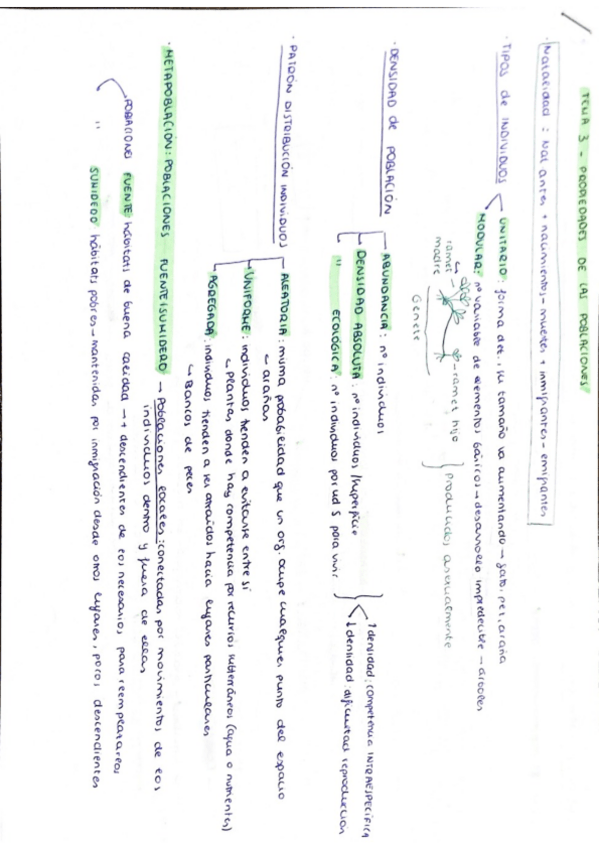 TEMA 3 - PROPIEDADES DE LAS POBLACIONES
· Natalidad : Nat antes + nacimientos - muertes + inmigrantes - emigrantes
· TIPOS de INDIVIDUOS
UNITARIO: forma det., su tamaño va aumentando → gato, pez, araña
MODULAR: nº variable de elementos básicos → desarrollo impredecible - árboles
ramet madre
ramet hijo
Genete
producidos asexualmente
· DENSIDAD de POBLACIÓN
ABUNDANCIA: nº individuos
DENSIDAD ABSOLUTA: nº individuos / superficie
" ECOLÓGICA: nº individuos por ud S para vivir
↑ densidad: competencia INTRAESPECÍFICA
↓ densidad: dificultad reproducción
· PATRÓN DISTRIBUCIÓN INDIVIDUOS
ALEATORIA: misma probabilidad que un org. ocupe cualquier punto del espacio
↳ arañas
UNIFORME: individuos tienden a evitarse entre sí
↳ Plantas donde hay competencia por recursos subterráneos (agua o nutrientes)
AGREGADA: individuos tienden a ser atraídos hacia lugares particulares
↳ Bancos de peces
· METAPOBLACIÓN: POBLACIONES FUENTE (SUMIDERO → Poblaciones locales: conectadas por movimientos de los
individuos dentro y fuera de ellas
POBLACIONES FUENTE: hábitats de buena calidad → + descendientes de los necesarios para reemplazarlos
" SUMIDERO: hábitats pobres → mantenidas por inmigración desde otros lugares, pocos descendientes